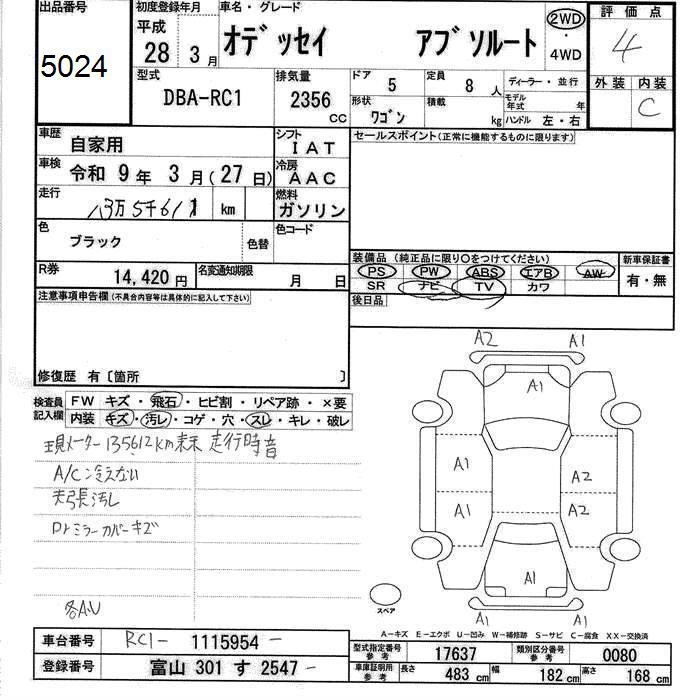 出品番号 初度登録年月 車名・グレード 評価点
5024 平成 28 3月 オデッセイ アブソルート 2WD・4WD 4
型式 排気量 ドア 5 定員 8人 ディーラー・並行 外装 内装
DBA-RC1 2356 CC 形状 ワゴン 積載 kg モデル年式 年 ハンドル 左・右 C
車歴 自家用 シフト IAT セールスポイント(正常に機能するものに限ります)
車検 令和 9年 3月(27日) 冷房 AAC
走行 km 燃料 ガソリン
色 ブラック 色替 色コード
装備品(純正品に限り○をつけてください) 新車保証書
PS PW ABS エアB AW 有・無
SR ナビ TV カワ
R券 14,420円 名変通知期限 月 日
後日品
注意事項申告欄(不具合内容等は具体的に記入して下さい)
A2 A1
A1
修復歴 有〔箇所 〕
検査員記入欄 FW キズ・飛石・ヒビ割・リペア跡・×要
内装 キズ・汚レ・コゲ・穴・スレ・キレ・破レ
現メーター135612km 走行時音
A/C冷えない
A1 A2
天張汚レ
A1 A2
Drミラーカバーキズ
A1
各A.U
スペア
A1 A1
A-キズ E-エクボ U-凹み W-補修跡 S-サビ C-腐食 XX-交換済
車台番号 RC1- 1115954 -
型式指定番号 参考 17637 類別区分番号 参考 0080
登録番号 富山 301 す 2547 -
車庫証明用 参考 長さ 483 cm 幅 182 cm 高さ 168 cm